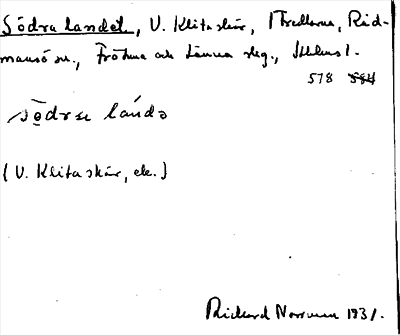 Södra landet, V. Klitaskär, Thrallarna, Räd-
mansö sn., Frötuna och Länna skg., Sthlms l.
578 584
södrɛ landə
(V. Klitaskär, ek.)
Rickard Norman 1931.